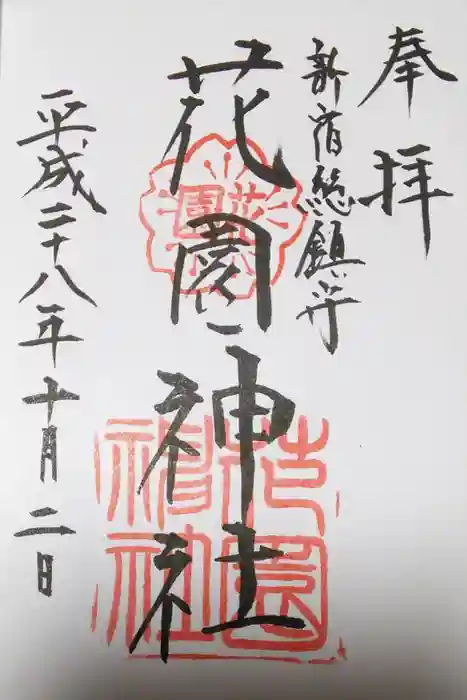 奉拝
新宿総鎮守
花園神社
平成二十八年十月二日
花園
花園神社